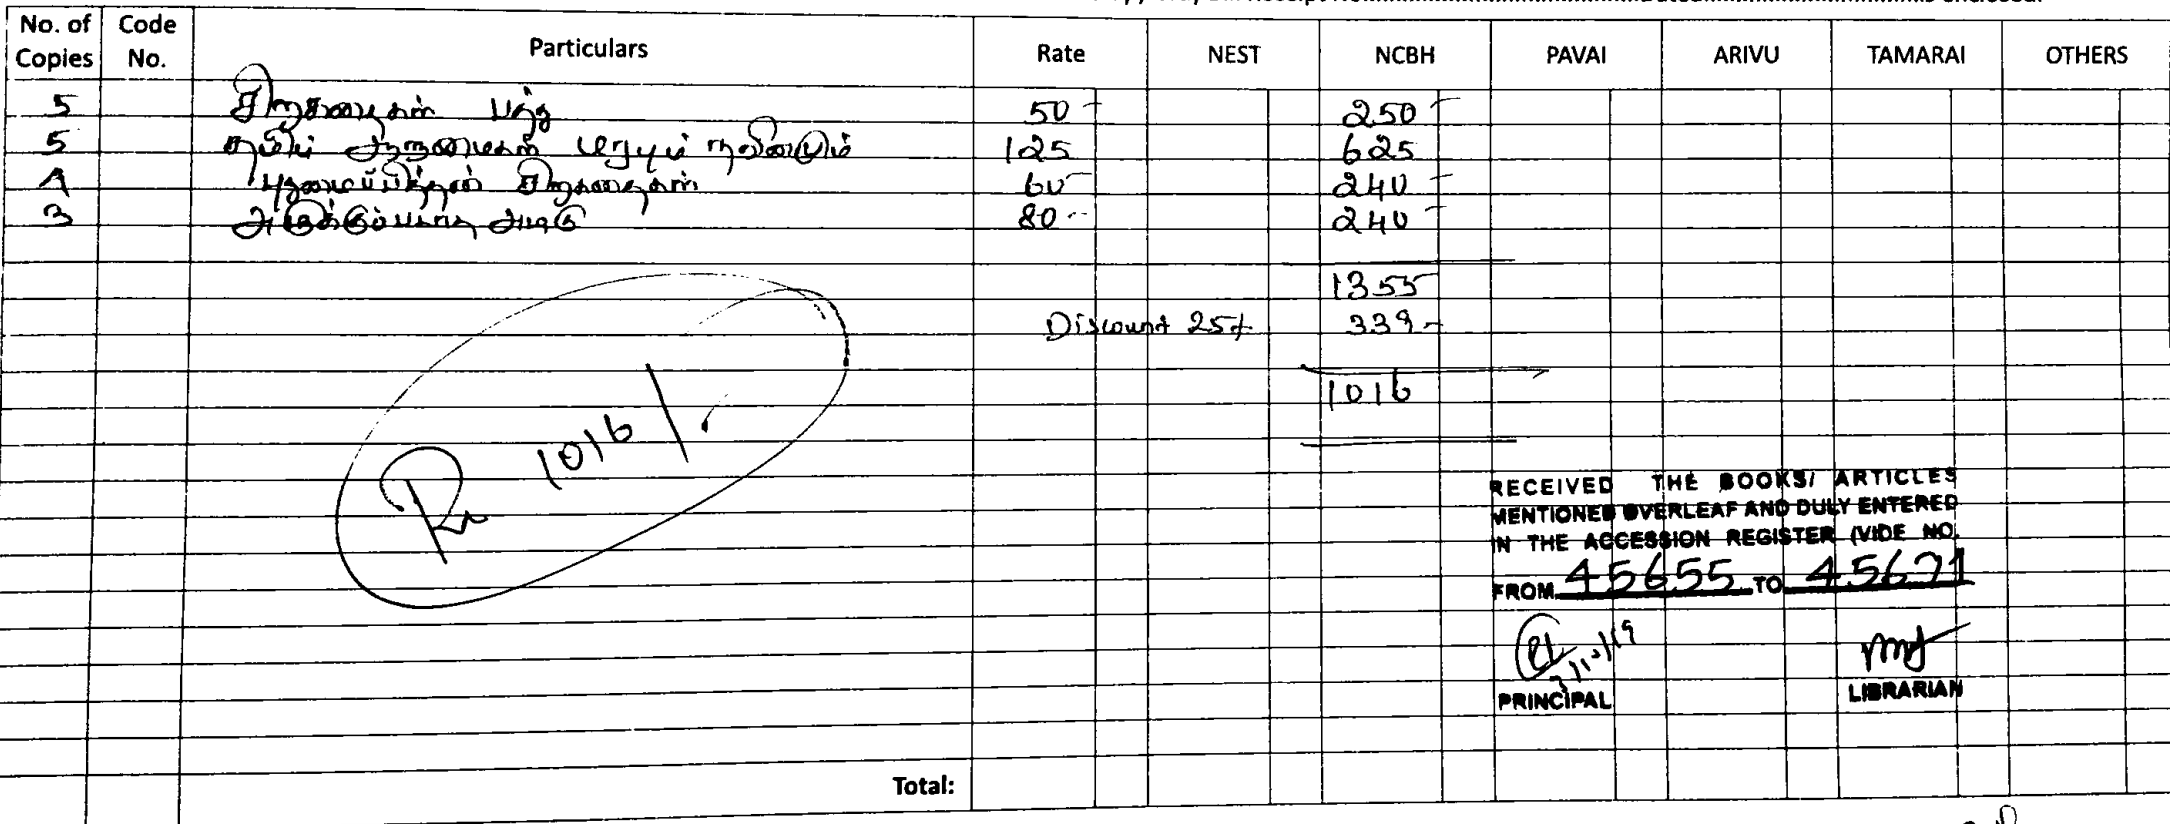 No. of Copies Code No. Particulars Rate NEST NCBH PAVAI ARIVU TAMARAI OTHERS
5 சிறுகதைகள் பத்து 50 - 250 -
5 தமிழ் 125 625
4 புதுமைப்பித்தன் சிறுகதைகள் 60 - 240 -
3 80 - 240 -
1355
Discount 25% 339 -
1016
Rs 1016/-
RECEIVED THE BOOKS/ ARTICLES
MENTIONED OVERLEAF AND DULY ENTERED
IN THE ACCESSION REGISTER (VIDE NO.
FROM 45655 TO 45671
3/10/19
PRINCIPAL LIBRARIAN
Total: